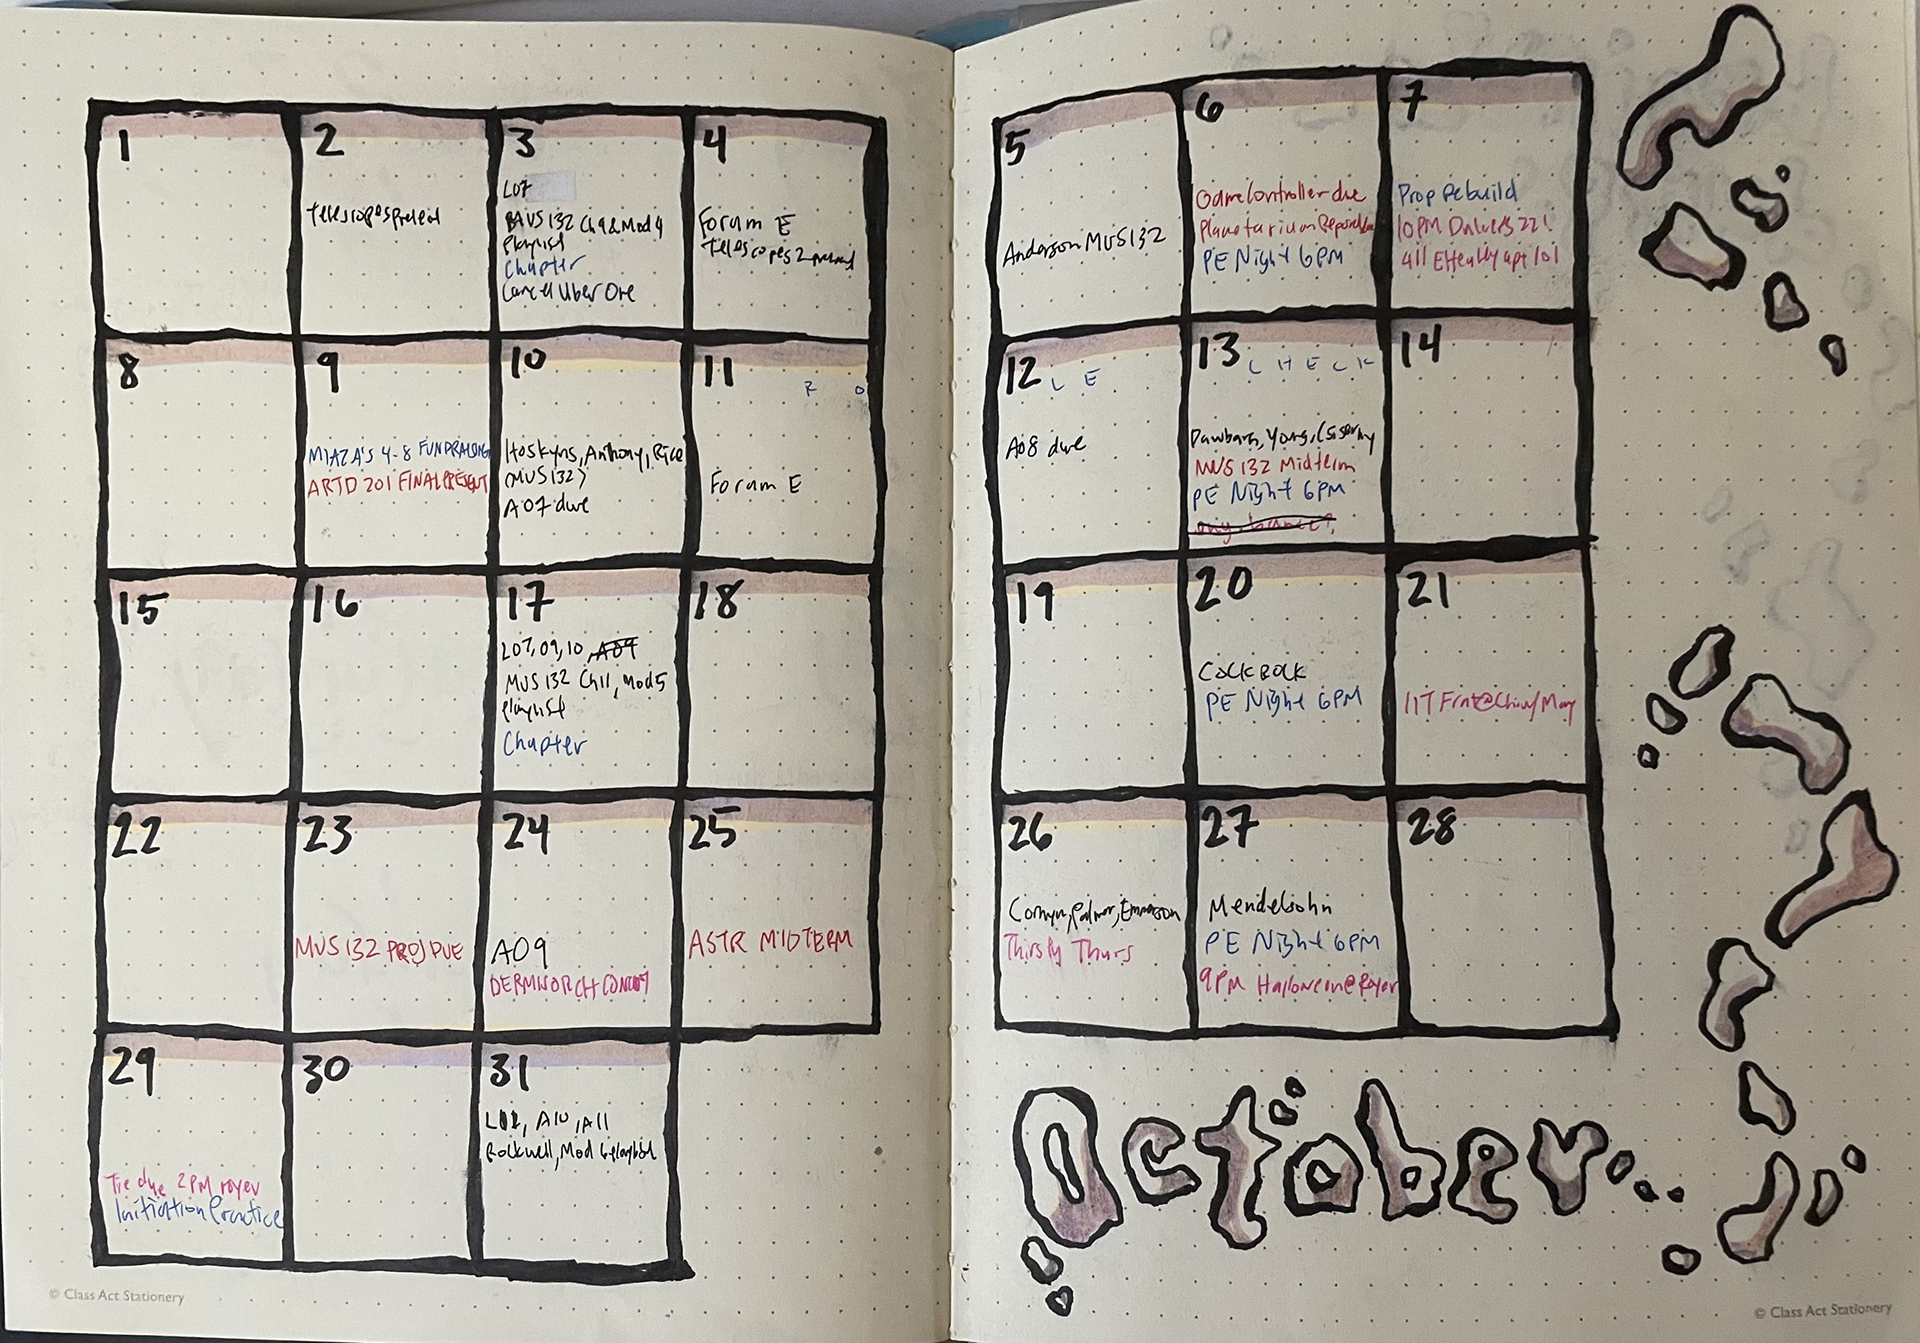 1
2
Telescopes present
3
L07
MUS 132 Ch9 & Mod 4
Playlist
Chapter
Cancel Uber One
4
Forum E
Telescopes 2 present
5
Anderson MUS 132
6
Game Controller due
Planetarium Report due
PE Night 6PM
7
Prop Rebuild
10PM 22!
411 apt 101
8
9
MIAZA'S 4-8 FUNDRAISING
ARTD 201 FINAL PRESENT
10
Hoskyns, Anthony, Rice
(MUS 132)
A07 due
11
R O
Forum E
12
L E
A08 due
13
C H E C K
Dawbarn, Yong,
MUS 132 Midterm
PE Night 6PM
14
15
16
17
L07, 09, 10, A09
MUS 132 Ch11, Mod 5
Playlist
Chapter
18
19
20
COCK ROCK
PE Night 6PM
21
Frat@Chiw/May
22
23
MUS 132 PROJ DUE
24
A09
25
ASTR MIDTERM
26
Comyn, Palmer, Emerson
Thirsty Thurs
27
Mendelsohn
PE Night 6PM
9PM Halloween@Royer
28
29
Tie dye 2PM royer
Initiation Practice
30
31
L12, A10, A11
Rockwell, Mod 6 playlist
October
© Class Act Stationery
© Class Act Stationery